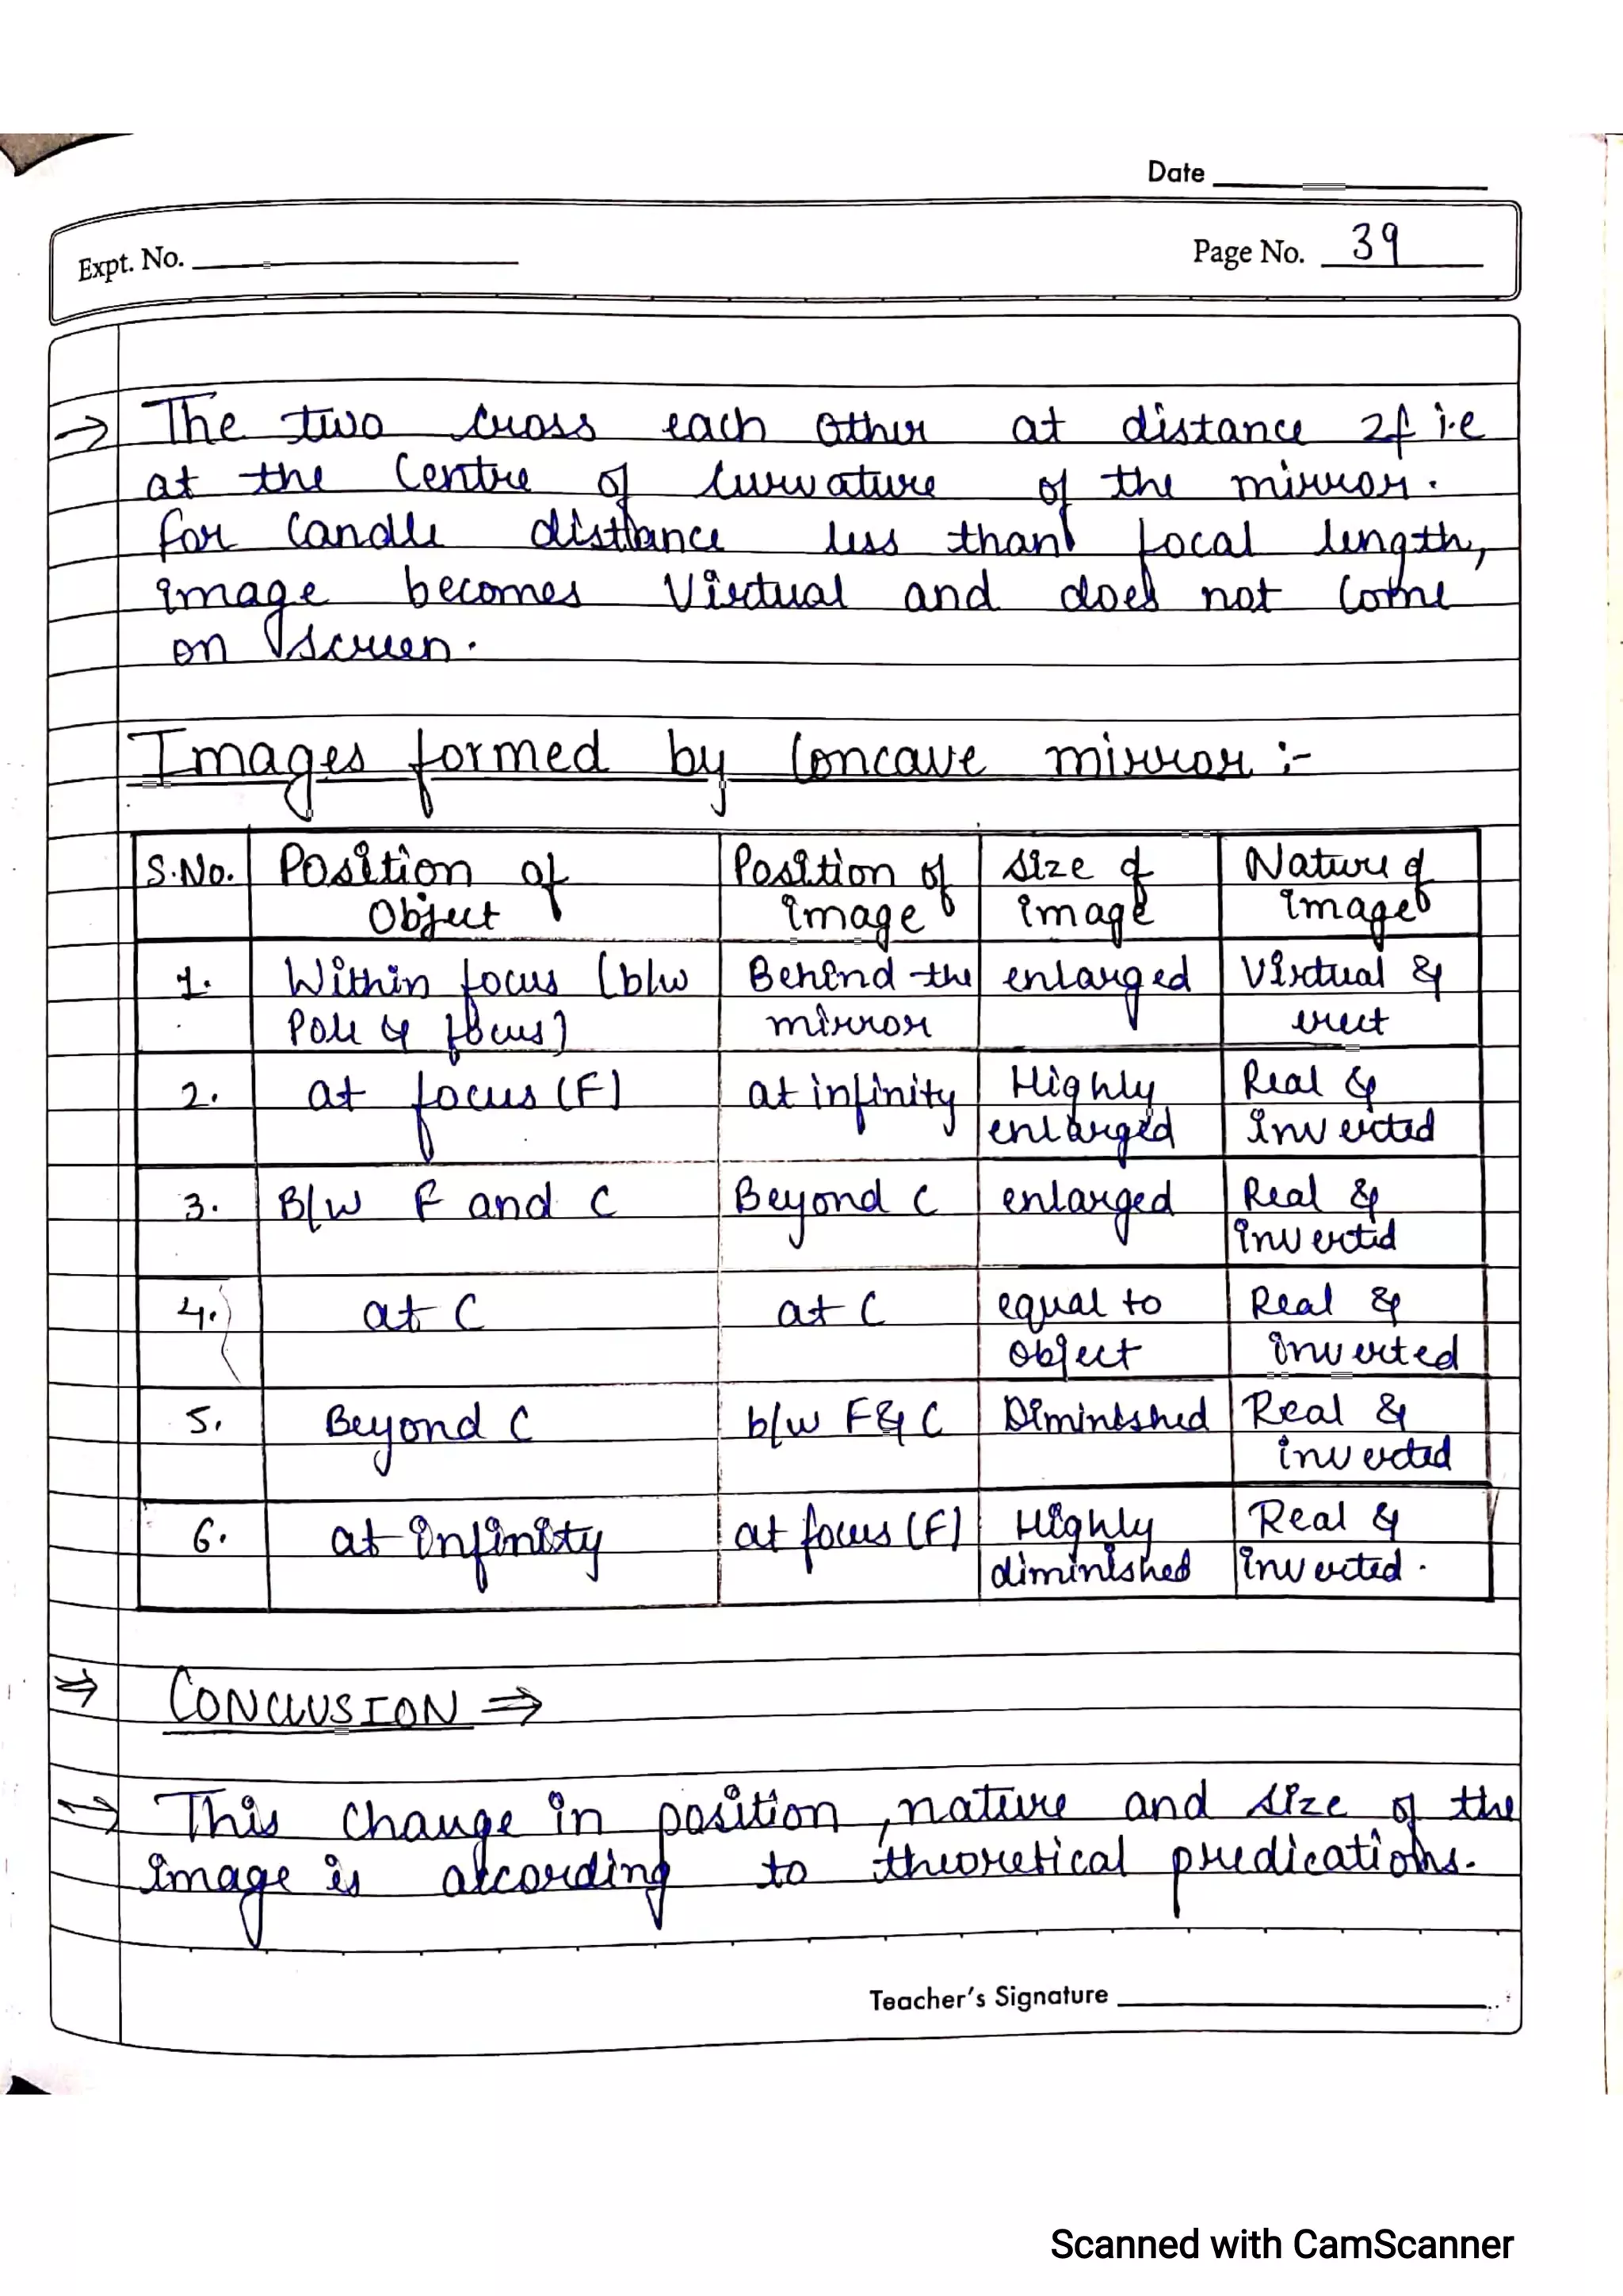 Date
Expt. No.
Page No. 39
→ The two cross each other at distance 2f i.e
at the Centre of Curvature of the mirror.
for Candle distance less than focal length,
image becomes Virtual and does not Come
on screen.
Images formed by Concave mirror :-
S.No. Position of Object Position of image Size of image Nature of image
1. Within focus (b/w Pole & focus) Behind the mirror enlarged Virtual & erect
2. at focus (F) at infinity Highly enlarged Real & inverted
3. B/w F and C Beyond C enlarged Real & inverted
4. at C at C equal to object Real & inverted
5. Beyond C b/w F & C Diminished Real & inverted
6. at infinity at focus (F) Highly diminished Real & inverted.
⇒ CONCLUSION ⇒
→ This change in position, nature and size of the
image is according to theoretical predications.
Teacher's Signature
Scanned with CamScanner